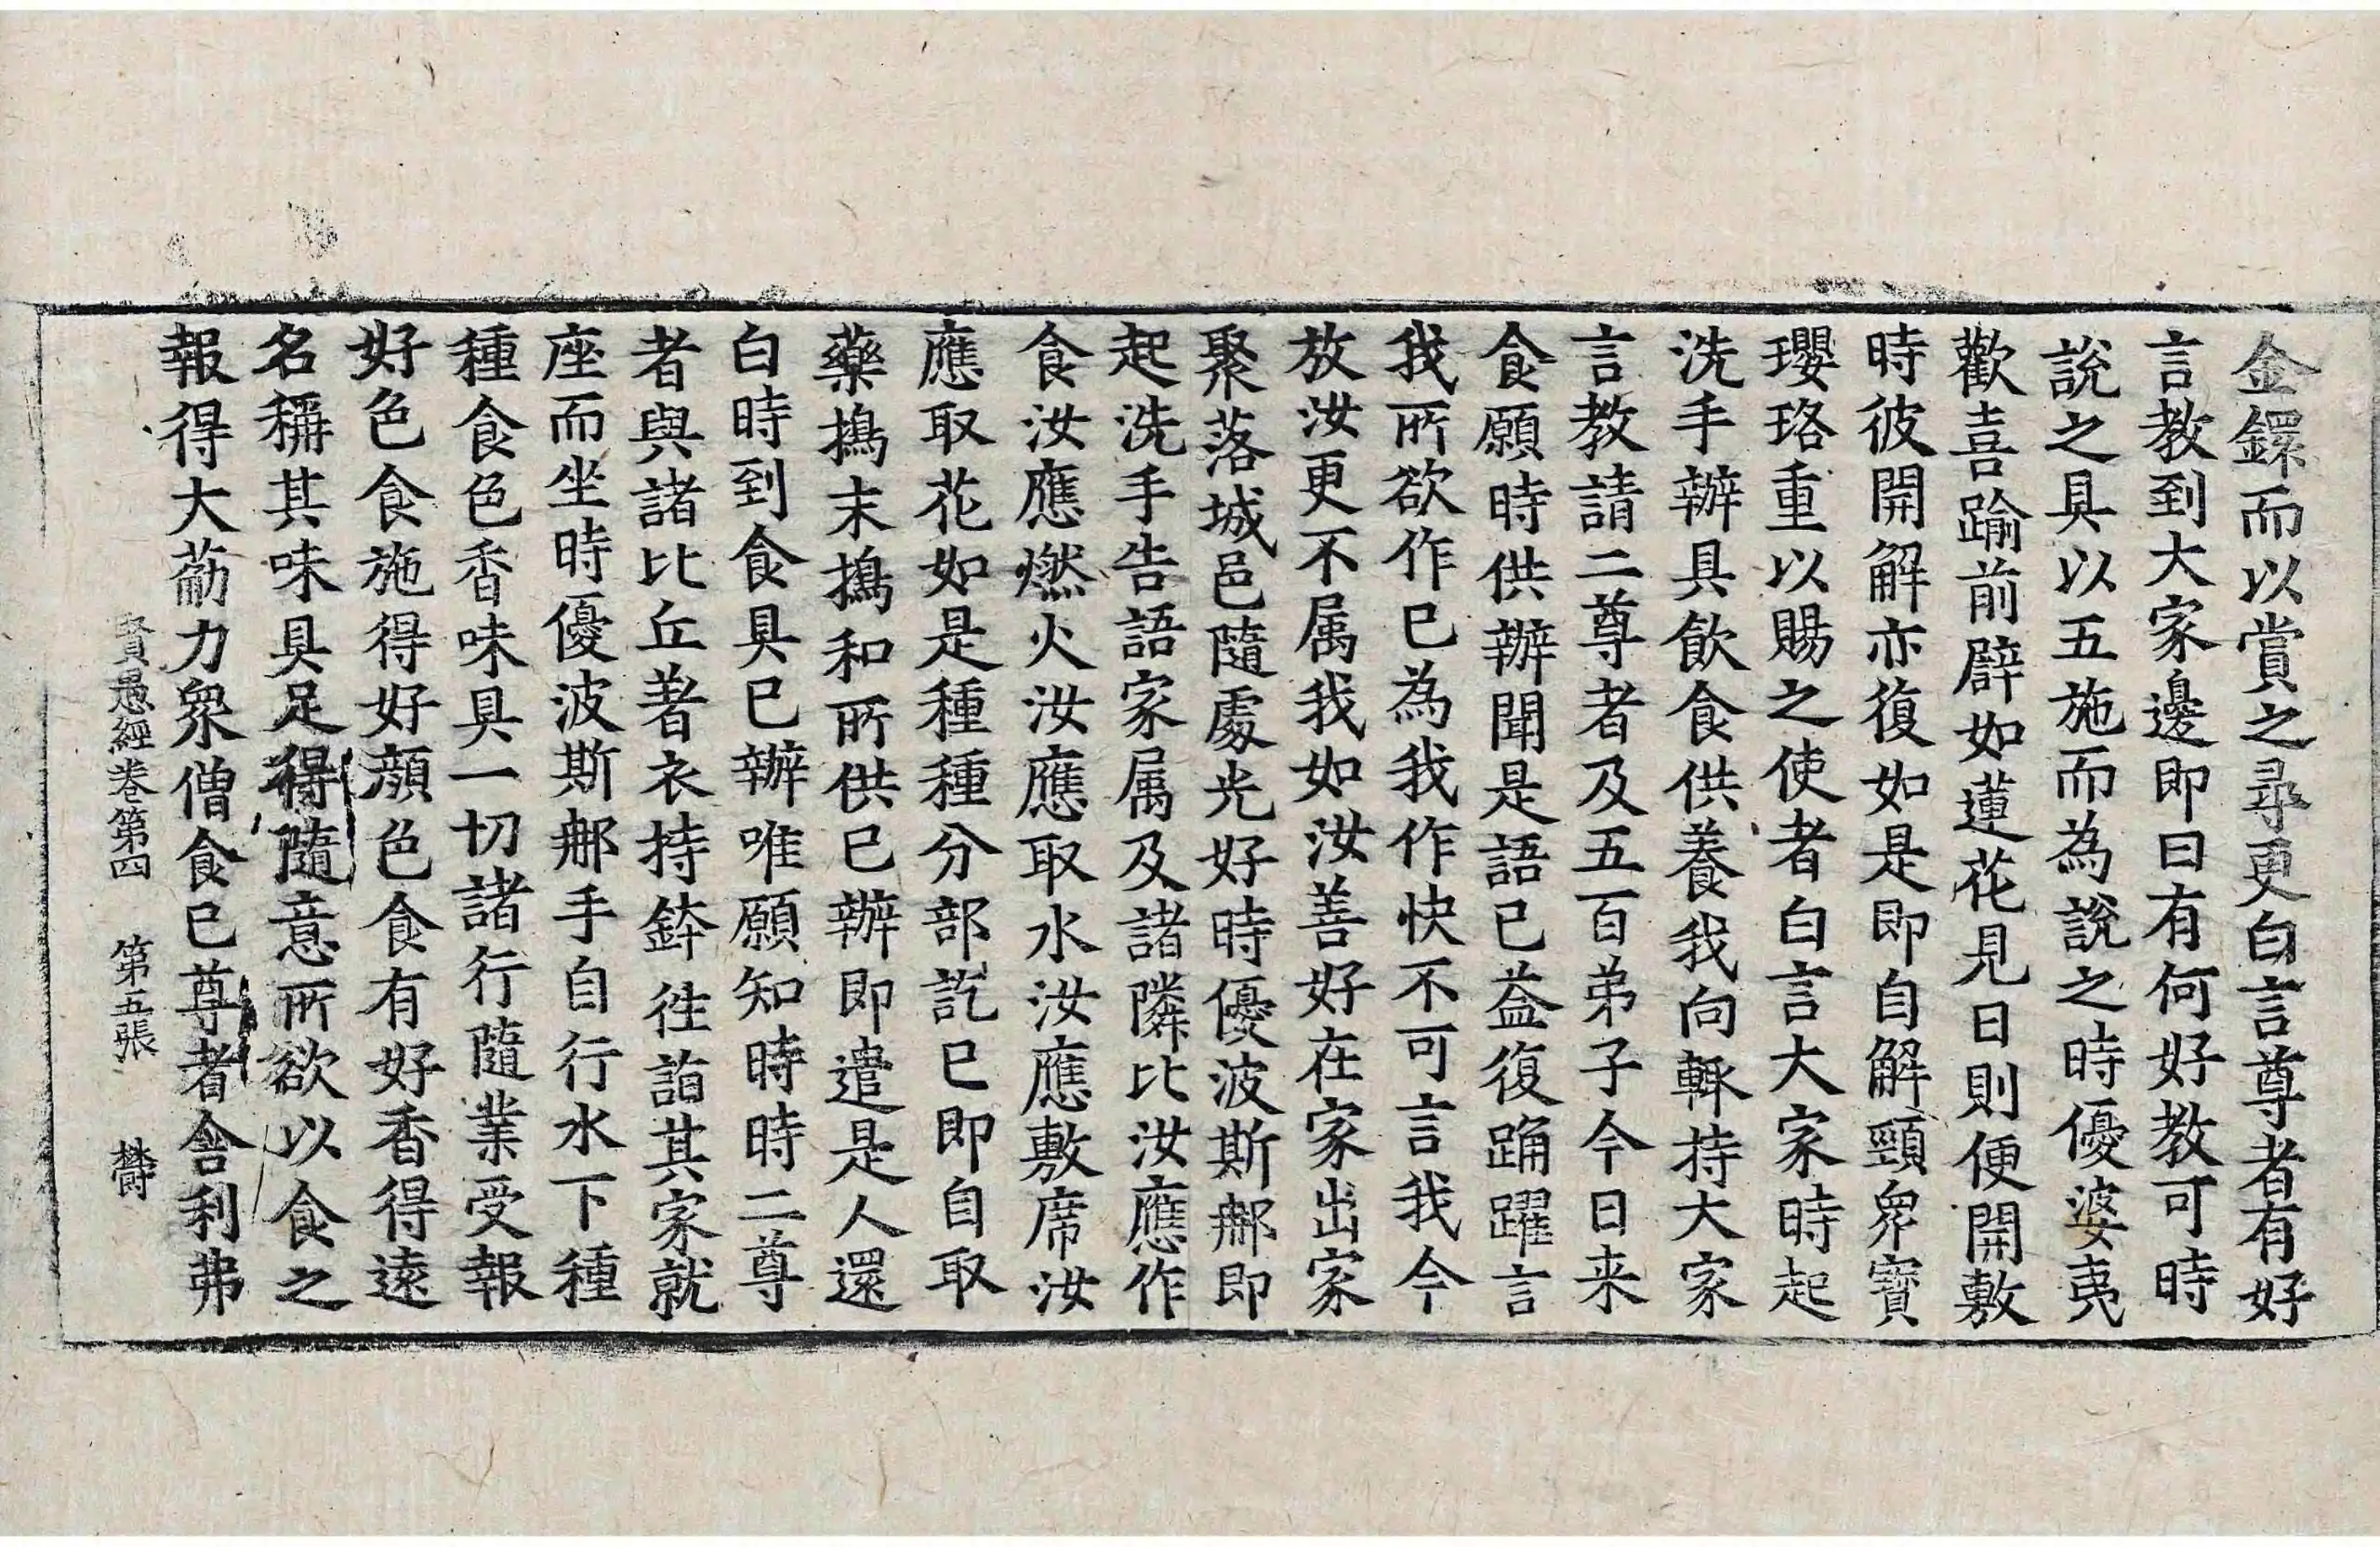 金鐶而以賞之尋更白言尊者有好
言教到大家邊即曰有何好教可時
說之具以五施而為說之時優婆夷
歡喜踰前辟如蓮花見日則便開敷
時彼開解亦復如是即自解頸衆寶
瓔珞重以賜之使者白言大家時起
洗手辦具飲食供養我向輙持大家
言教請二尊者及五百弟子今日来
食願時供辦聞是語已益復踊躍言
我所欲作已為我作快不可言我今
放汝更不属我如汝善好在家出家
聚落城邑隨處光好時優波斯郍即
起洗手告語家属及諸隣比汝應作
食汝應燃火汝應取水汝應敷席汝
應取花如是種種分部訖已即自取
藥擣末擣和所供已辦即遣是人還
白時到食具已辦唯願知時時二尊
者與諸比丘著衣持鉢徃詣其家就
座而坐時優波斯郍手自行水下種
種食色香味具一切諸行隨業受報
好色食施得好顔色食有好香得遠
名稱其味具足得隨意所欲以食之
報得大䇶力衆僧食已尊者舍利弗
賢愚經卷第四 第五張 欝